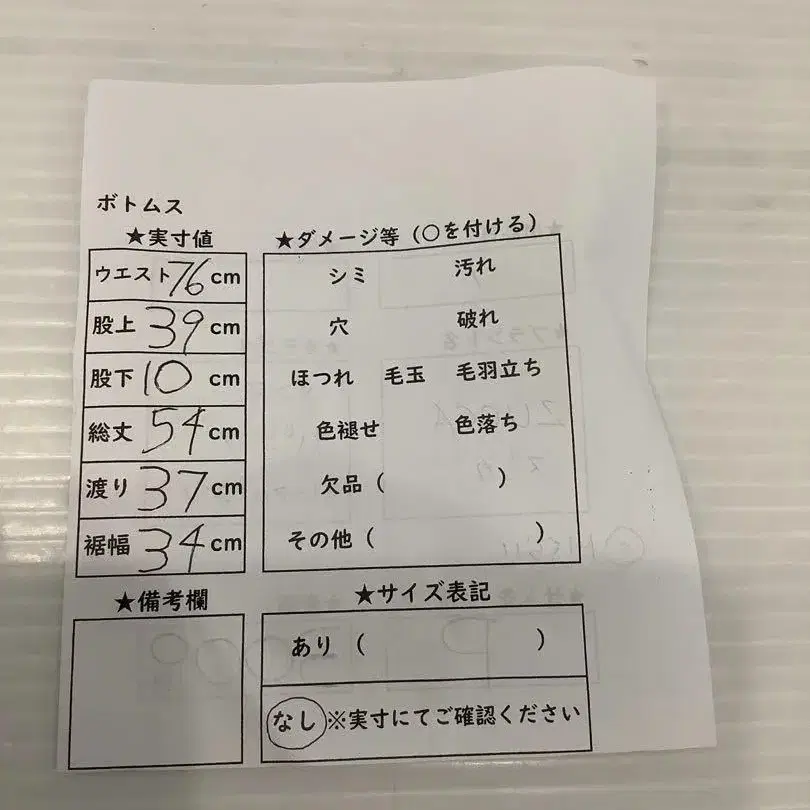 ボトムス
★実寸値
ウエスト76cm
股上 39cm
股下 10 cm
総丈 54cm
渡り 37cm
裾幅 34cm
★備考欄
★ダメージ等（○を付ける）
シミ 汚れ
穴 破れ
ほつれ 毛玉 毛羽立ち
色褪せ 色落ち
欠品（ ）
その他（ ）
★サイズ表記
あり（ ）
なし※実寸にてご確認ください